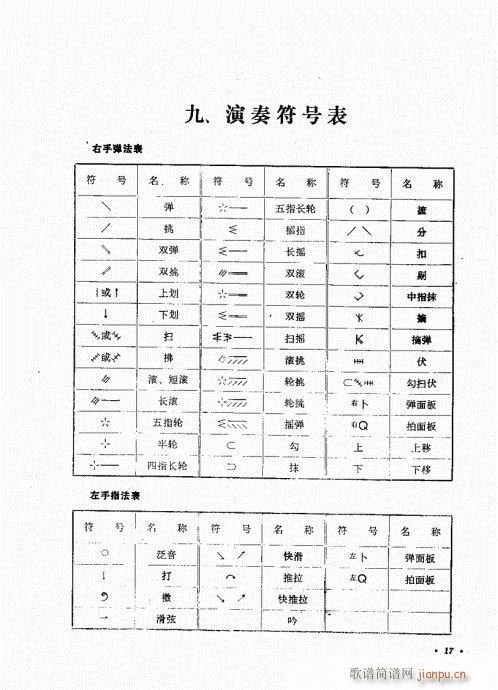 九、演奏符号表
右手弹法表
符 号 名 称 符 号 名 称 符 号 名 称
＼ 弹 五指长轮 （ ） 摭
／ 挑 摇指 ／＼ 分
双弹 长摇 扣
双挑 双滚 剔
或↑ 上划 双轮 中指抹
↓ 下划 双摇 摘
或 扫 扫摇 摘弹
或 拂 滚挑 伏
滚、短滚 轮挑 勾扫伏
长滚 轮挑 右卜 弹面板
五指轮 摇弹 右Q 拍面板
半轮 ⊂ 勾 上 上移
四指长轮 ⊃ 抹 下 下移
左手指法表
符 号 名 称 符 号 名 称 符 号 名 称
○ 泛音 ↘ ↗ 快滑 左卜 弹面板
打 推拉 左Q 拍面板
撒 ↘ ↗ 快推拉
→ 滑弦 吟
· 17 ·
歌谱简谱网
jianpu.cn